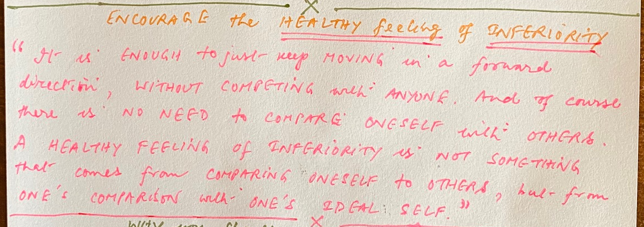 ENCOURAGE the HEALTHY feeling of INFERIORITY
"It is ENOUGH to just keep MOVING in a forward
direction, WITHOUT COMPETING with ANYONE. And of course
there is NO NEED to COMPARE ONESELF with OTHERS.
A HEALTHY FEELING of INFERIORITY is NOT SOMETHING
that comes from COMPARING ONESELF to OTHERS, but from
ONE'S COMPARISON with ONE'S IDEAL SELF."